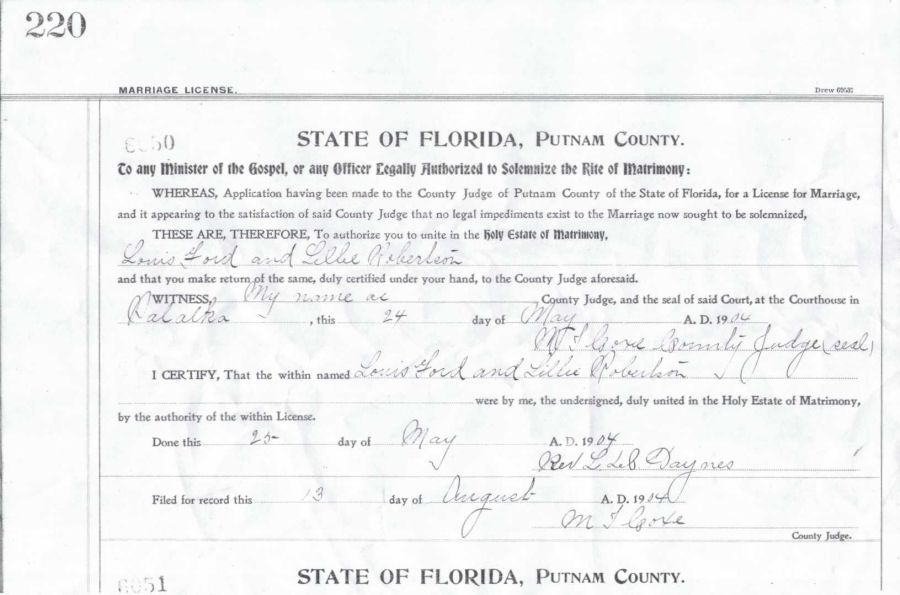 220
MARRIAGE LICENSE. Drew 69531
6050
STATE OF FLORIDA, PUTNAM COUNTY.
To any Minister of the Gospel, or any Officer Legally Authorized to Solemnize the Rite of Matrimony:
WHEREAS, Application having been made to the County Judge of Putnam County of the State of Florida, for a License for Marriage,
and it appearing to the satisfaction of said County Judge that no legal impediments exist to the Marriage now sought to be solemnized,
THESE ARE, THEREFORE, To authorize you to unite in the Holy Estate of Matrimony,
Louis Ford and Lillie Robertson
and that you make return of the same, duly certified under your hand, to the County Judge aforesaid.
WITNESS, My name as County Judge, and the seal of said Court, at the Courthouse in
Palatka, this 24 day of May A. D. 1904
County Judge (seal)
I CERTIFY, That the within named Louis Ford and Lillie Robertson
were by me, the undersigned, duly united in the Holy Estate of Matrimony,
by the authority of the within License.
Done this 25 day of May A. D. 1904
Rev L. Daynes
Filed for record this 13 day of August A. D. 1904
County Judge.
6051
STATE OF FLORIDA, PUTNAM COUNTY.